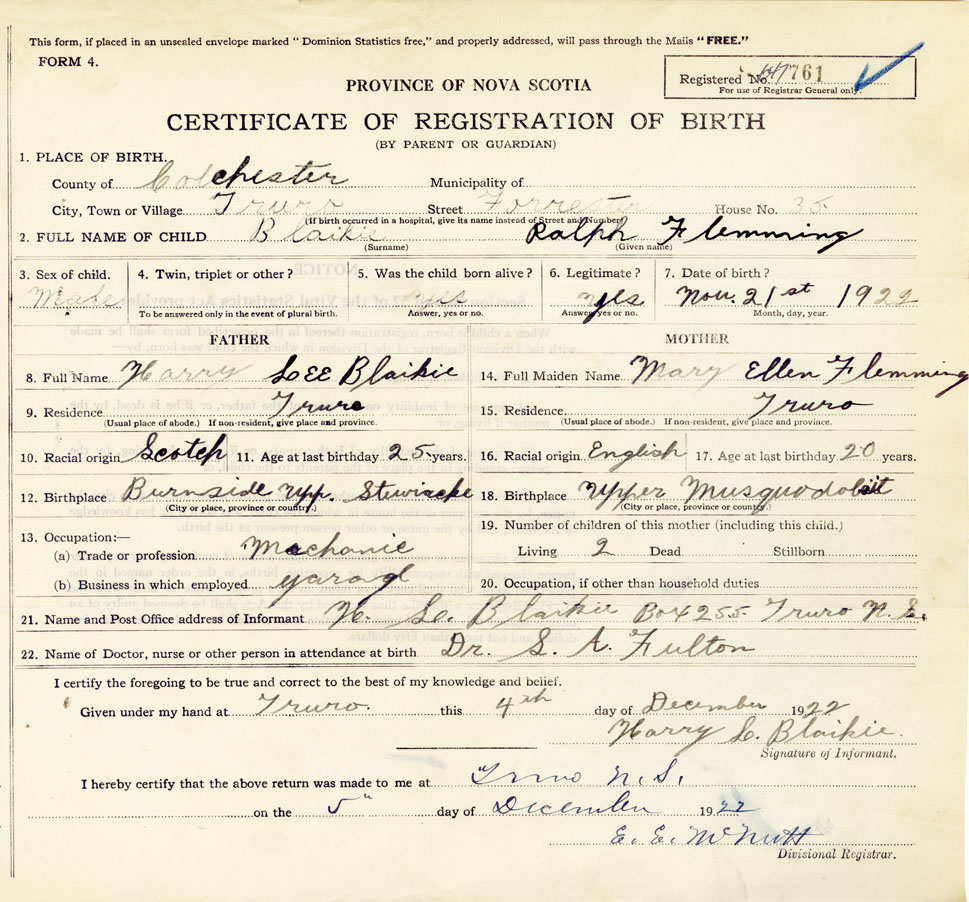 This form, if placed in an unsealed envelope marked “ Dominion Statistics free,” and properly addressed, will pass through the Mails “ FREE.”
FORM 4.
Registered No. 761
For use of Registrar General only.
PROVINCE OF NOVA SCOTIA
CERTIFICATE OF REGISTRATION OF BIRTH
(BY PARENT OR GUARDIAN)
1. PLACE OF BIRTH.
County of Colchester Municipality of
City, Town or Village Truro Street Forrester House No. 35
(If birth occurred in a hospital, give its name instead of Street and Number)
2. FULL NAME OF CHILD Blaikie Ralph Flemming
(Surname) (Given name)
3. Sex of child. 4. Twin, triplet or other ? 5. Was the child born alive ? 6. Legitimate ? 7. Date of birth ?
Male yes yes Nov. 21st 1922
To be answered only in the event of plural birth. Answer, yes or no. Answer, yes or no. Month, day, year.
FATHER MOTHER
8. Full Name Harry LEE Blaikie 14. Full Maiden Name Mary Ellen Flemming
9. Residence Truro 15. Residence Truro
(Usual place of abode.) If non-resident, give place and province. (Usual place of abode.) If non-resident, give place and province.
10. Racial origin Scotch 11. Age at last birthday 25 years. 16. Racial origin English 17. Age at last birthday 20 years.
12. Birthplace Burnside Upp. Stewiacke 18. Birthplace Upper Musquodoboit
(City or place, province or country.) (City or place, province or country.)
13. Occupation:— 19. Number of children of this mother (including this child.)
(a) Trade or profession Mechanic Living 2 Dead Stillborn
(b) Business in which employed garage 20. Occupation, if other than household duties
21. Name and Post Office address of Informant H. L. Blaikie Box 255 Truro N. S.
22. Name of Doctor, nurse or other person in attendance at birth Dr. S. A. Fulton
I certify the foregoing to be true and correct to the best of my knowledge and belief.
Given under my hand at Truro. this 4th day of December 1922
Harry L. Blaikie.
Signature of Informant.
I hereby certify that the above return was made to me at Truro N.S.
on the 5" day of December 1922
E. E. McNutt
Divisional Registrar.